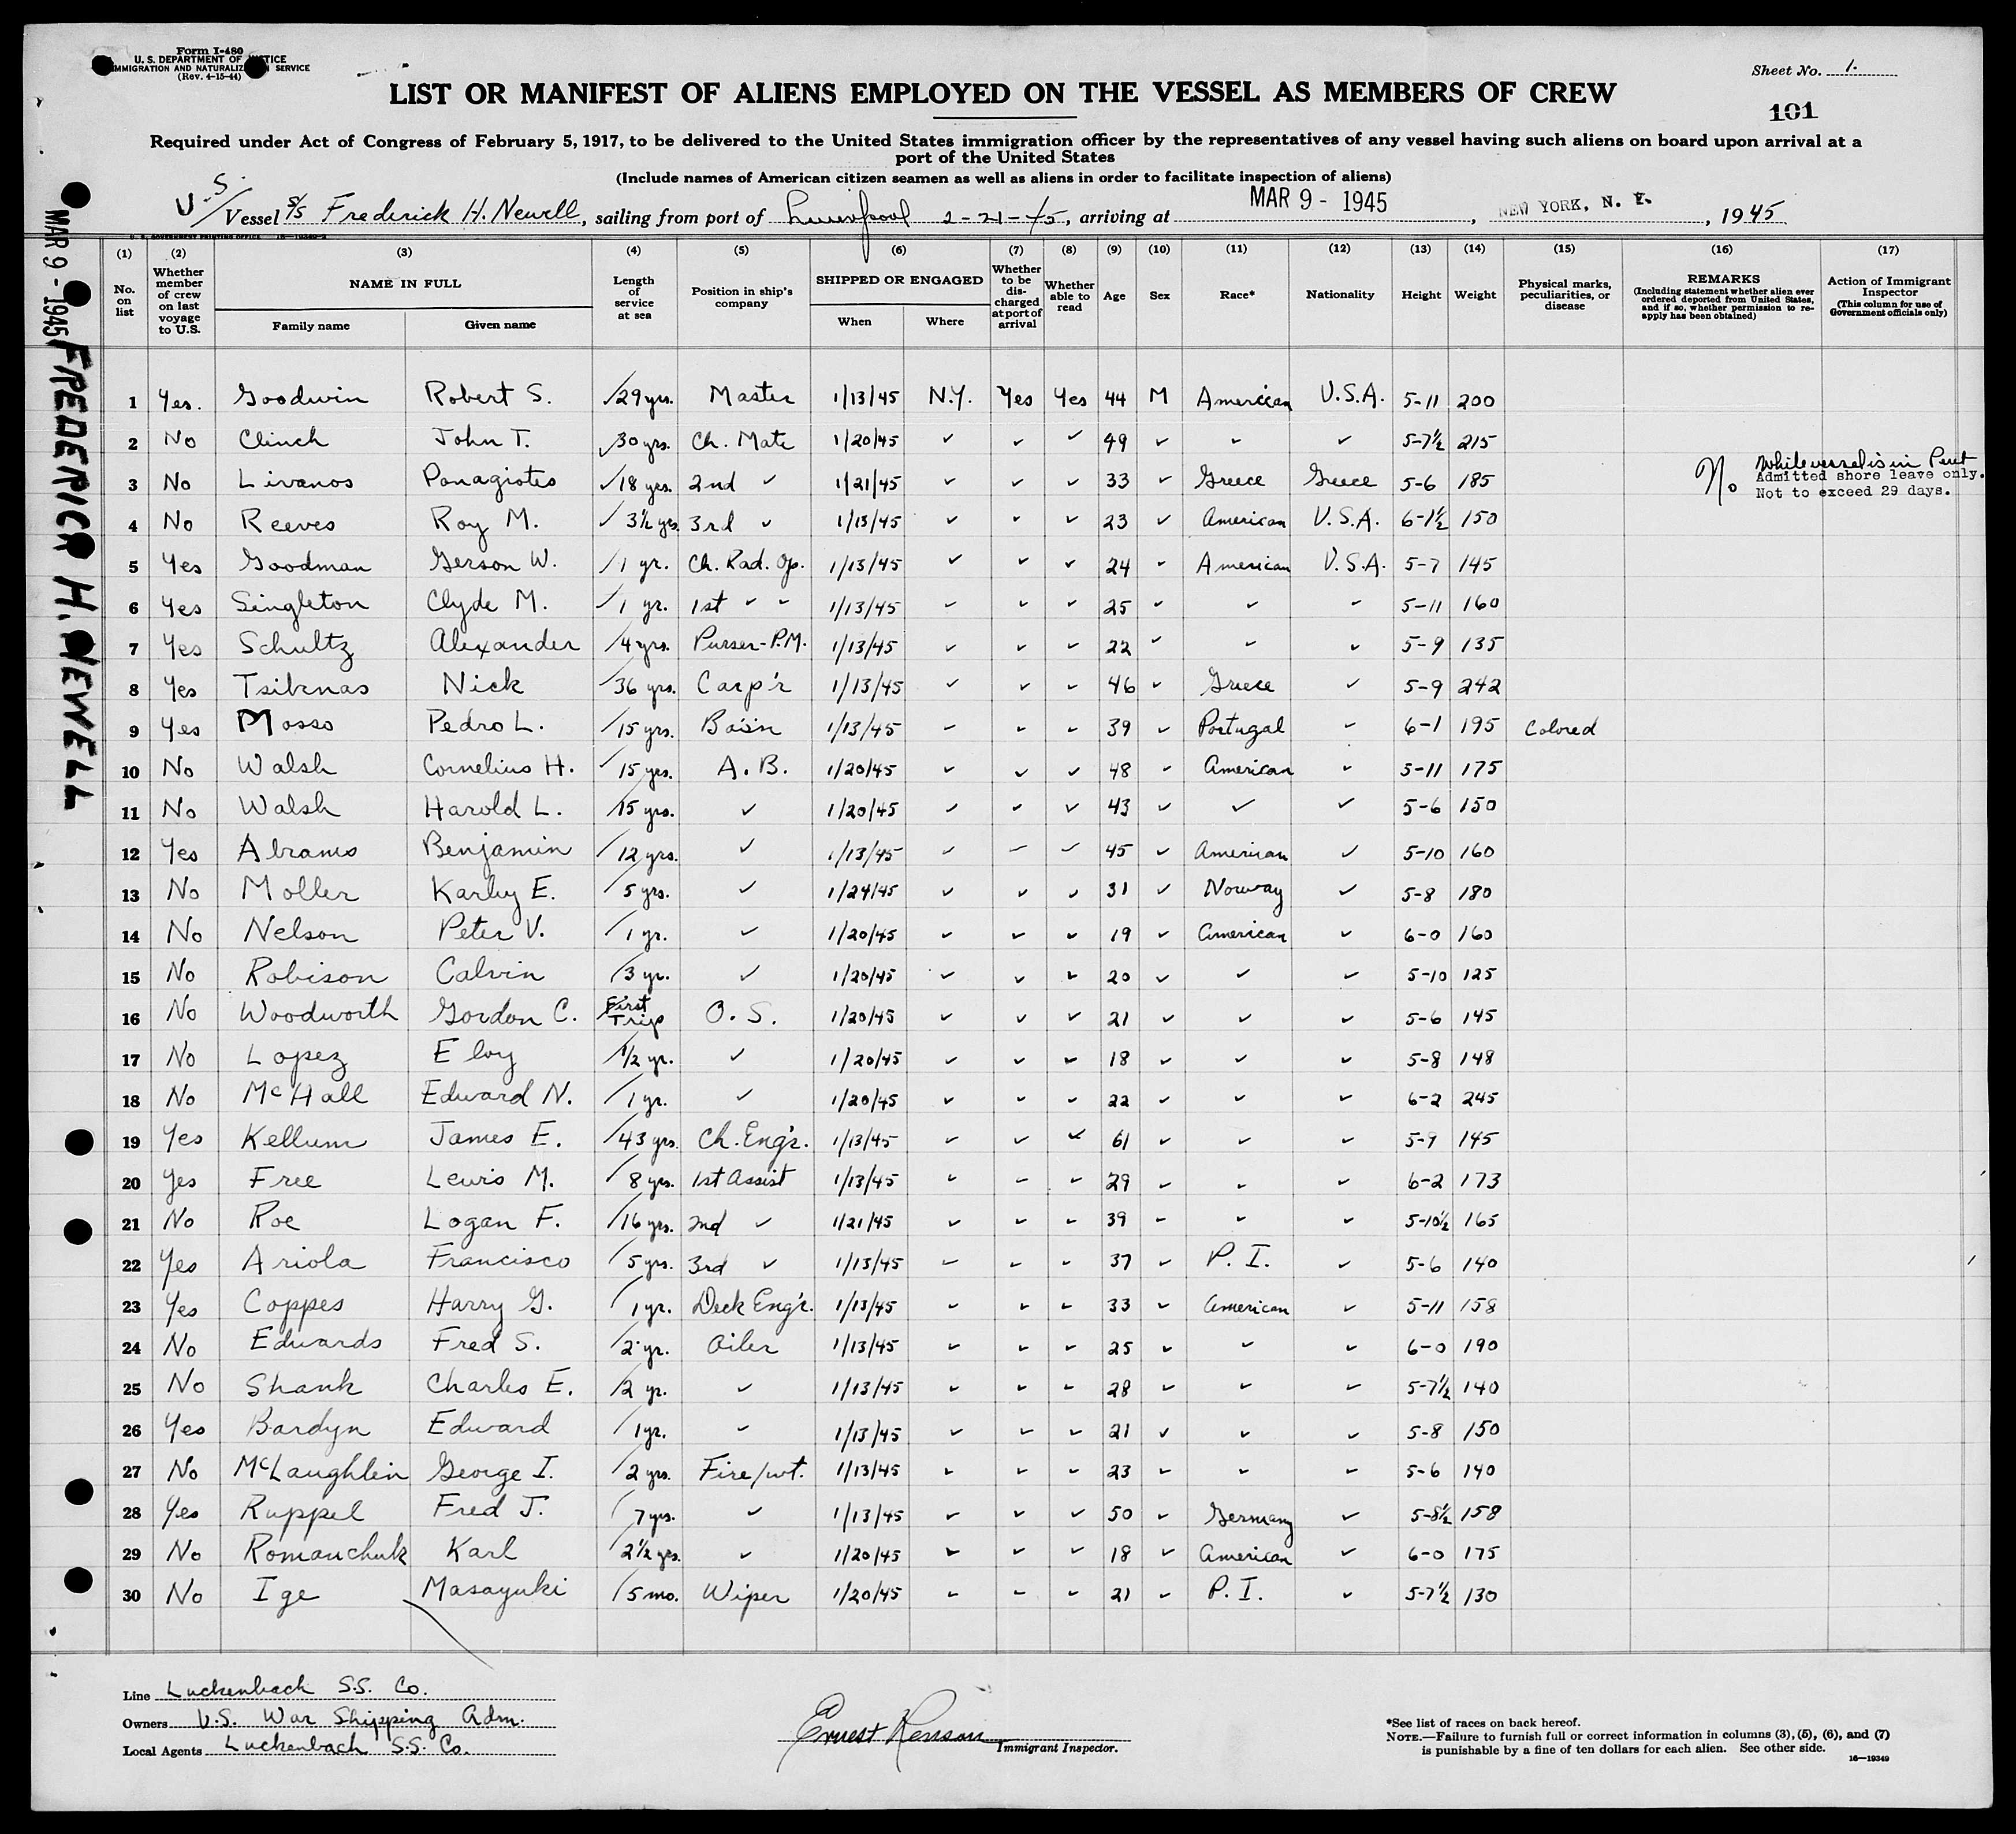 Form I-480
U. S. DEPARTMENT OF JUSTICE
IMMIGRATION AND NATURALIZATION SERVICE
(Rev. 4-15-44)
Sheet No. 1.
LIST OR MANIFEST OF ALIENS EMPLOYED ON THE VESSEL AS MEMBERS OF CREW
101
Required under Act of Congress of February 5, 1917, to be delivered to the United States immigration officer by the representatives of any vessel having such aliens on board upon arrival at a
port of the United States
(Include names of American citizen seamen as well as aliens in order to facilitate inspection of aliens)
U.S/ Vessel S/S Frederick H. Newell, sailing from port of Liverpool 2-21-45, arriving at MAR 9 - 1945, NEW YORK, N. Y., 1945
U. S. GOVERNMENT PRINTING OFFICE 16-19349-2
MAR 9 - 1945 FREDERICK H. NEWELL
(1) (2) (3) (4) (5) (6) (7) (8) (9) (10) (11) (12) (13) (14) (15) (16) (17)
No. on list
Whether member of crew on last voyage to U.S.
NAME IN FULL
Family name
Given name
Length of service at sea
Position in ship's company
SHIPPED OR ENGAGED
When
Where
Whether to be discharged at port of arrival
Whether able to read
Age
Sex
Race*
Nationality
Height
Weight
Physical marks, peculiarities, or disease
REMARKS
(Including statement whether alien ever ordered deported from United States, and if so, whether permission to reapply has been obtained)
Action of Immigrant Inspector
(This column for use of Government officials only)
1 Yes. Goodwin Robert S. /29 yrs. Master 1/13/45 N.Y. Yes Yes 44 M American U.S.A. 5-11 200
2 No Clinch John T. ✓30 yrs. Ch. Mate 1/20/45 ✓ ✓ ✓ 49 ✓ ✓ ✓ 5-7½ 215
3 No Livanos Panagiotis ✓18 yrs. 2nd ✓ 1/21/45 ✓ ✓ ✓ 33 ✓ Greece Greece 5-6 185 No While vessel is in Port
Admitted shore leave only.
Not to exceed 29 days.
4 No Reeves Roy M. ✓ 3½ yrs. 3rd ✓ 1/13/45 ✓ ✓ ✓ 23 ✓ American U.S.A. 6-1½ 150
5 Yes Goodman Gerson W. /1 yr. Ch. Rad. Op. 1/13/45 ✓ ✓ ✓ 24 ✓ American U.S.A. 5-7 145
6 Yes Singleton Clyde M. /1 yr. 1st ✓ ✓ 1/13/45 ✓ ✓ ✓ 25 ✓ ✓ ✓ 5-11 160
7 Yes Schultz Alexander /4 yrs. Purser-P.M. 1/13/45 ✓ ✓ ✓ 22 ✓ ✓ ✓ 5-9 135
8 Yes Nick /36 yrs. Carp'r 1/13/45 ✓ ✓ ✓ 46 ✓ Greece ✓ 5-9 242
9 Yes Mosso Pedro L. /15 yrs. Bos'n 1/13/45 ✓ ✓ ✓ 39 ✓ Portugal ✓ 6-1 195 Colored
10 No Walsh Cornelius H. /15 yrs. A.B. 1/20/45 ✓ ✓ ✓ 48 ✓ American ✓ 5-11 175
11 No Walsh Harold L. /15 yrs. ✓ 1/20/45 ✓ ✓ ✓ 43 ✓ ✓ ✓ 5-6 150
12 Yes Abrams Benjamin /12 yrs. ✓ 1/13/45 ✓ ✓ ✓ 45 ✓ American ✓ 5-10 160
13 No Moller E. /5 yrs. ✓ 1/24/45 ✓ ✓ ✓ 31 ✓ Norway ✓ 5-8 180
14 No Nelson Peter V. /1 yr. ✓ 1/20/45 ✓ ✓ ✓ 19 ✓ American ✓ 6-0 160
15 No Robison Calvin /3 yr. ✓ 1/20/45 ✓ ✓ ✓ 20 ✓ ✓ ✓ 5-10 125
16 No Woodworth Gordon C. First Trip O.S. 1/20/45 ✓ ✓ ✓ 21 ✓ ✓ ✓ 5-6 145
17 No Lopez Eloy /½ yr. ✓ 1/20/45 ✓ ✓ ✓ 18 ✓ ✓ ✓ 5-8 148
18 No McHall Edward N. /1 yr. ✓ 1/20/45 ✓ ✓ ✓ 22 ✓ ✓ ✓ 6-2 245
19 Yes Kellum James E. /43 yrs. Ch. Eng'r. 1/13/45 ✓ ✓ ✓ 61 ✓ ✓ ✓ 5-9 145
20 Yes Free Lewis M. /8 yrs. 1st Assist 1/13/45 ✓ ✓ ✓ 29 ✓ ✓ ✓ 6-2 173
21 No Roe Logan F. /16 yrs. 2nd ✓ 1/21/45 ✓ ✓ ✓ 39 ✓ ✓ ✓ 5-10½ 165
22 Yes Ariola Francisco /5 yrs. 3rd ✓ 1/13/45 ✓ ✓ ✓ 37 ✓ P. I. ✓ 5-6 140
23 Yes Coppes Harry G. /1 yr. Deck Eng'r. 1/13/45 ✓ ✓ ✓ 33 ✓ American ✓ 5-11 158
24 No Edwards Fred S. /2 yr. Oiler 1/13/45 ✓ ✓ ✓ 25 ✓ ✓ ✓ 6-0 190
25 No Shank Charles E. /2 yr. ✓ 1/13/45 ✓ ✓ ✓ 28 ✓ ✓ ✓ 5-7½ 140
26 Yes Bardyn Edward /1 yr. ✓ 1/13/45 ✓ ✓ ✓ 21 ✓ ✓ ✓ 5-8 150
27 No McLaughlin George I. /2 yrs. Fire/wt. 1/13/45 ✓ ✓ ✓ 23 ✓ ✓ ✓ 5-6 140
28 Yes Ruppel Fred J. /7 yrs. ✓ 1/13/45 ✓ ✓ ✓ 50 ✓ Germany ✓ 5-8½ 158
29 No Romanchuk Karl 2½ yrs. ✓ 1/20/45 ✓ ✓ ✓ 18 ✓ American ✓ 6-0 175
30 No Ige Masayuki /5 mo. Wiper 1/20/45 ✓ ✓ ✓ 21 ✓ P. I. ✓ 5-7½ 130
Line Luckenbach S.S. Co.
Owners U.S. War Shipping Adm.
Local Agents Luckenbach S.S. Co.
Ernest Renson Immigrant Inspector.
*See list of races on back hereof.
NOTE.—Failure to furnish full or correct information in columns (3), (5), (6), and (7)
is punishable by a fine of ten dollars for each alien. See other side.
16—19349